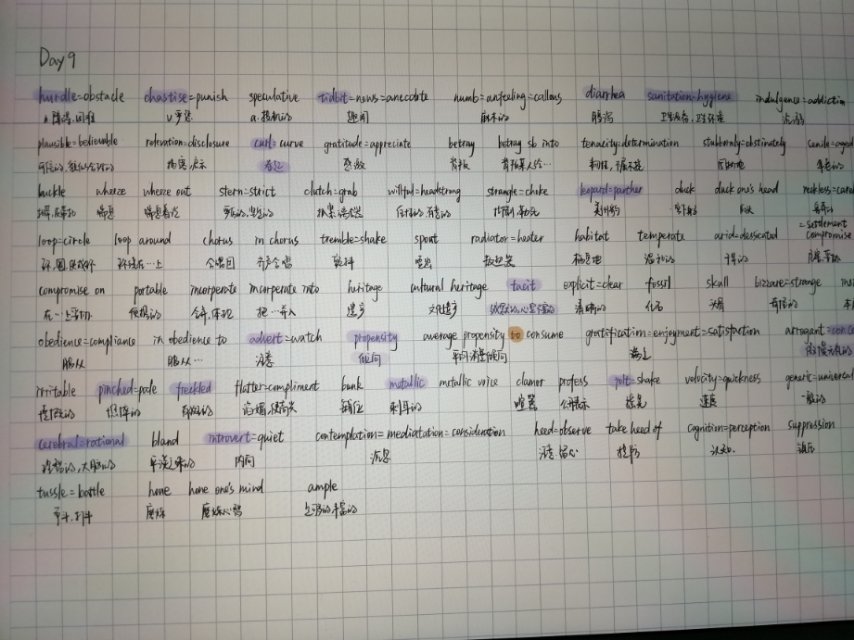 Day 9
hurdle=obstacle chastise=punish speculative tidbit=news=anecdote numb=unfeeling=callous diarrhea sanitation=hygiene indulgence=addiction
n.障碍,困难 v.罚 a.投机的 趣闻 麻木的 腹泻
plausible=believable curl=curve gratitude=appreciate betray betray sb into tenacity=determination stubbornly=obstinately senile=aged
卷边 感激 背叛 固执地 年老的
buckle wheeze wheeze out stern=strict clutch=grab willful=headstrong strangle=choke leopard=panther duck duck one's head
喘息 美洲豹
loop=circle loop around chorus in chorus tremble=shake spout radiator=heater habitat temperate arid=dessicated =settlement compromise
合唱团 齐声合唱 颤抖 喷出 散热器 栖息地 温和的
compromise on portable incorporate incorporate into heritage cultural heritage tacit explicit=clear fossil skull bizzare=strange
便携的 合并,体现 把…并入 遗产 文化遗产 清晰的 化石 头骨 奇怪的
obedience=compliance in obedience to advert=watch propensity average propensity to consume gratification=enjoyment=satisfaction
服从 服从… 注意 倾向 平均消费倾向 满足
irritable pinched=pale freckled flatter=compliment bunk metallic metallic voice clamor profess jolt=shake velocity=quickness
铺位 刺耳的 喧嚣 速度 一般的
cerebral=rational bland introvert=quiet contemplation=mediatation=consideration heed=observe take heed of cognition=perception suppression
理智的,大脑的 平淡乏味的 内向 沉思 注意,留心 认知
tussle=battle hone hone one's mind ample
争斗,打斗 磨炼 磨炼心智